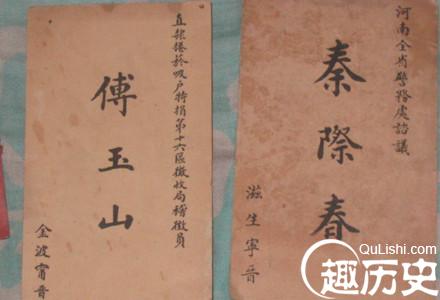 直隸捲菸吸户特捐第十六區徵收局稽徵員
傅玉山
金波甯晉
河南全省警務處諮議
秦際春
滋生寧晉
QuLishi.com
趣历史